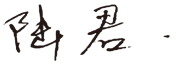 陆君.